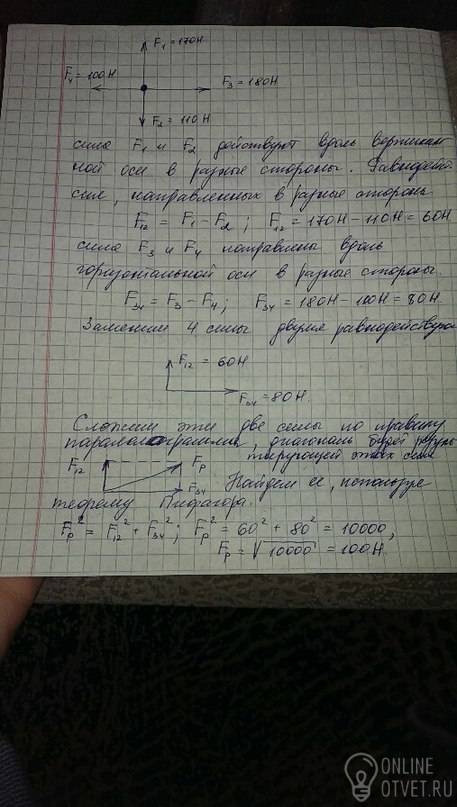 F₁ = 170Н
F₄ = 100Н
F₃ = 180Н
F₂ = 110Н
сила F₁ и F₂ действуют вдоль вертикаль
ной оси в разные стороны. Равнодейс
сил, направленных в разные стороны
F₁₂ = F₁ – F₂; F₁₂ = 170Н – 110Н = 60Н
сила F₃ и F₄ направлены вдоль
горизонтальной оси в разные стороны.
F₃₄ = F₃ – F₄; F₃₄ = 180Н – 100Н = 80Н.
Заменим 4 силы двумя равнодействую
F₁₂ = 60Н
F₃₄ = 80Н.
Сложим эти две силы по правилу
параллелограмма, диагональ будет резуль
тирующей этих сил
F₁₂
Fр
F₃₄
Найдем ее, используе
теорему Пифагора.
Fр² = F₁₂² + F₃₄²; Fр² = 60² + 80² = 10000,
Fр = √10000 = 100Н.
ONLINE
OTVET.RU